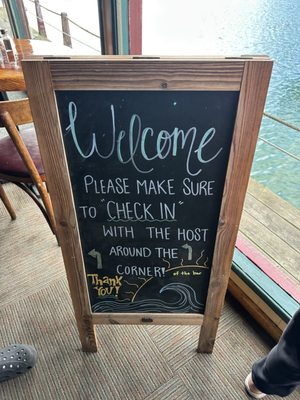 Welcome
PLEASE MAKE SURE
TO "CHECK IN"
WITH THE HOST
AROUND THE
CORNER!
of the bar
THANK
YOU!